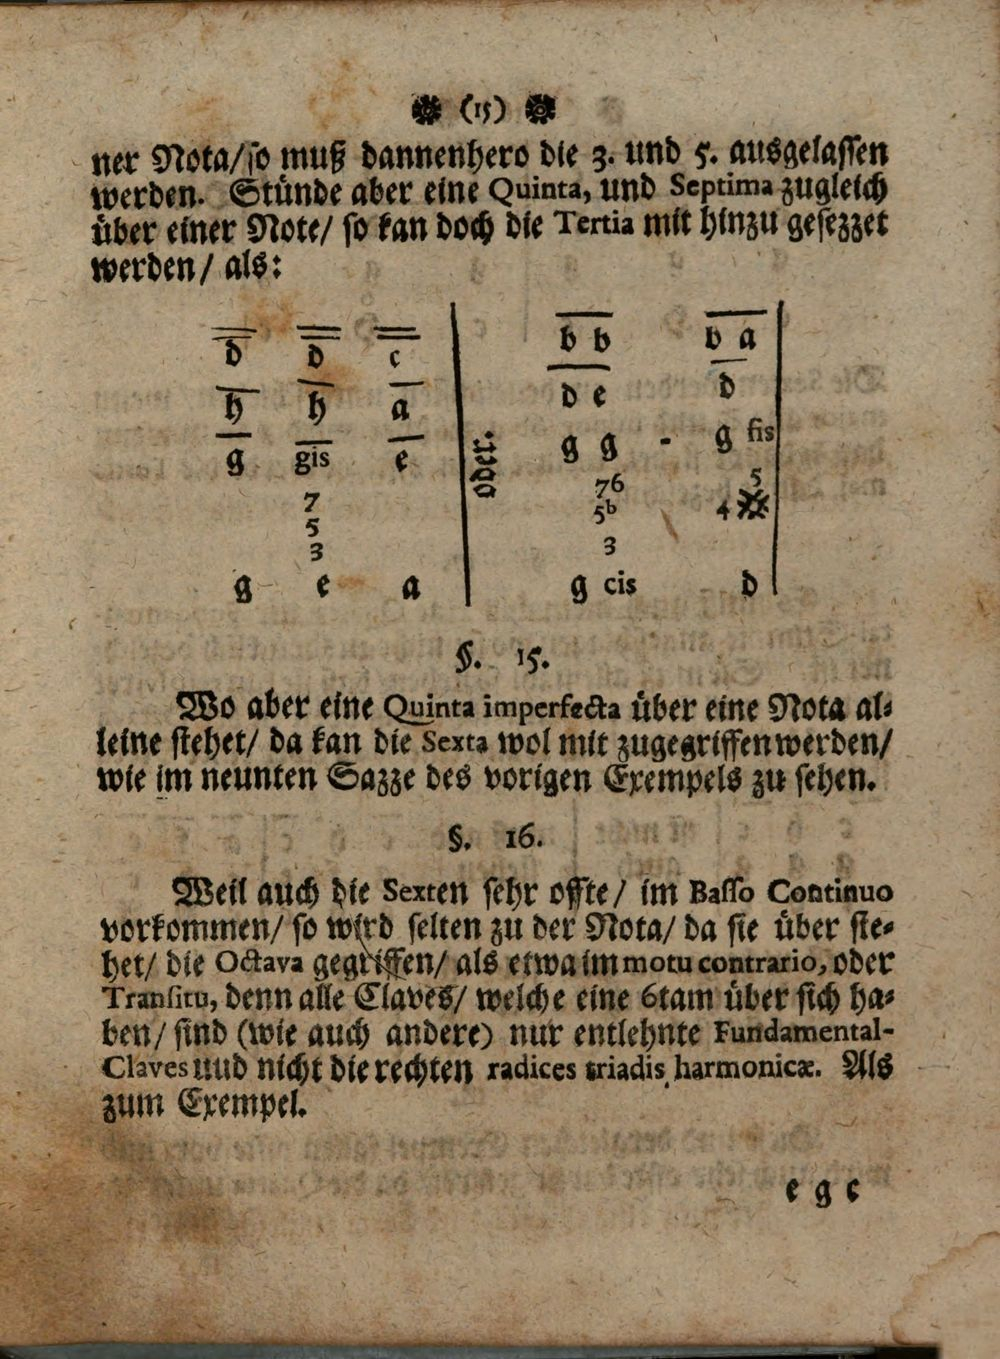 (15)
ner Nota/so muß dannenhero die 3. und 5. ausgelassen
werden. Stünde aber eine Quinta, und Septima zugleich
über einer Note/ so kan doch die Tertia mit hinzu gesezzet
werden/ als:
d d c
h h a
g gis e
7
5
3
g e a
oder.
b b b a
d e d
g g - g fis
76 5
5b 4 ※
3
g cis d
§. 15.
Wo aber eine Quinta imperfecta über eine Nota al⸗
leine stehet/ da kan die Sexta wol mit zugegriffen werden/
wie im neunten Sazze des vorigen Exempels zu sehen.
§. 16.
Weil auch die Sexten sehr offte/ im Basso Continuo
vorkommen/ so wird selten zu der Nota/ da sie über ste⸗
het/ die Octava gegriffen/ als etwa im motu contrario, oder
Transitu, denn alle Claves/ welche eine 6tam über sich ha⸗
ben/ sind (wie auch andere) nur entlehnte Fundamental-
Claves und nicht die rechten radices triadis harmonicæ. Als
zum Exempel.
e g c